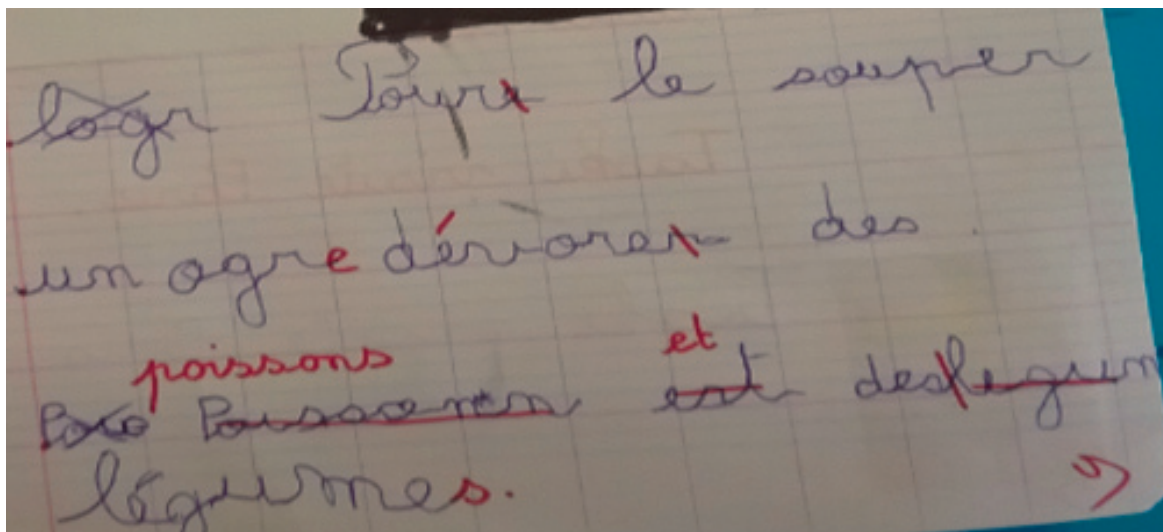 logr Pour le souper
un ogre dévore des
poissons et
Poissonn est des legum
légumes.